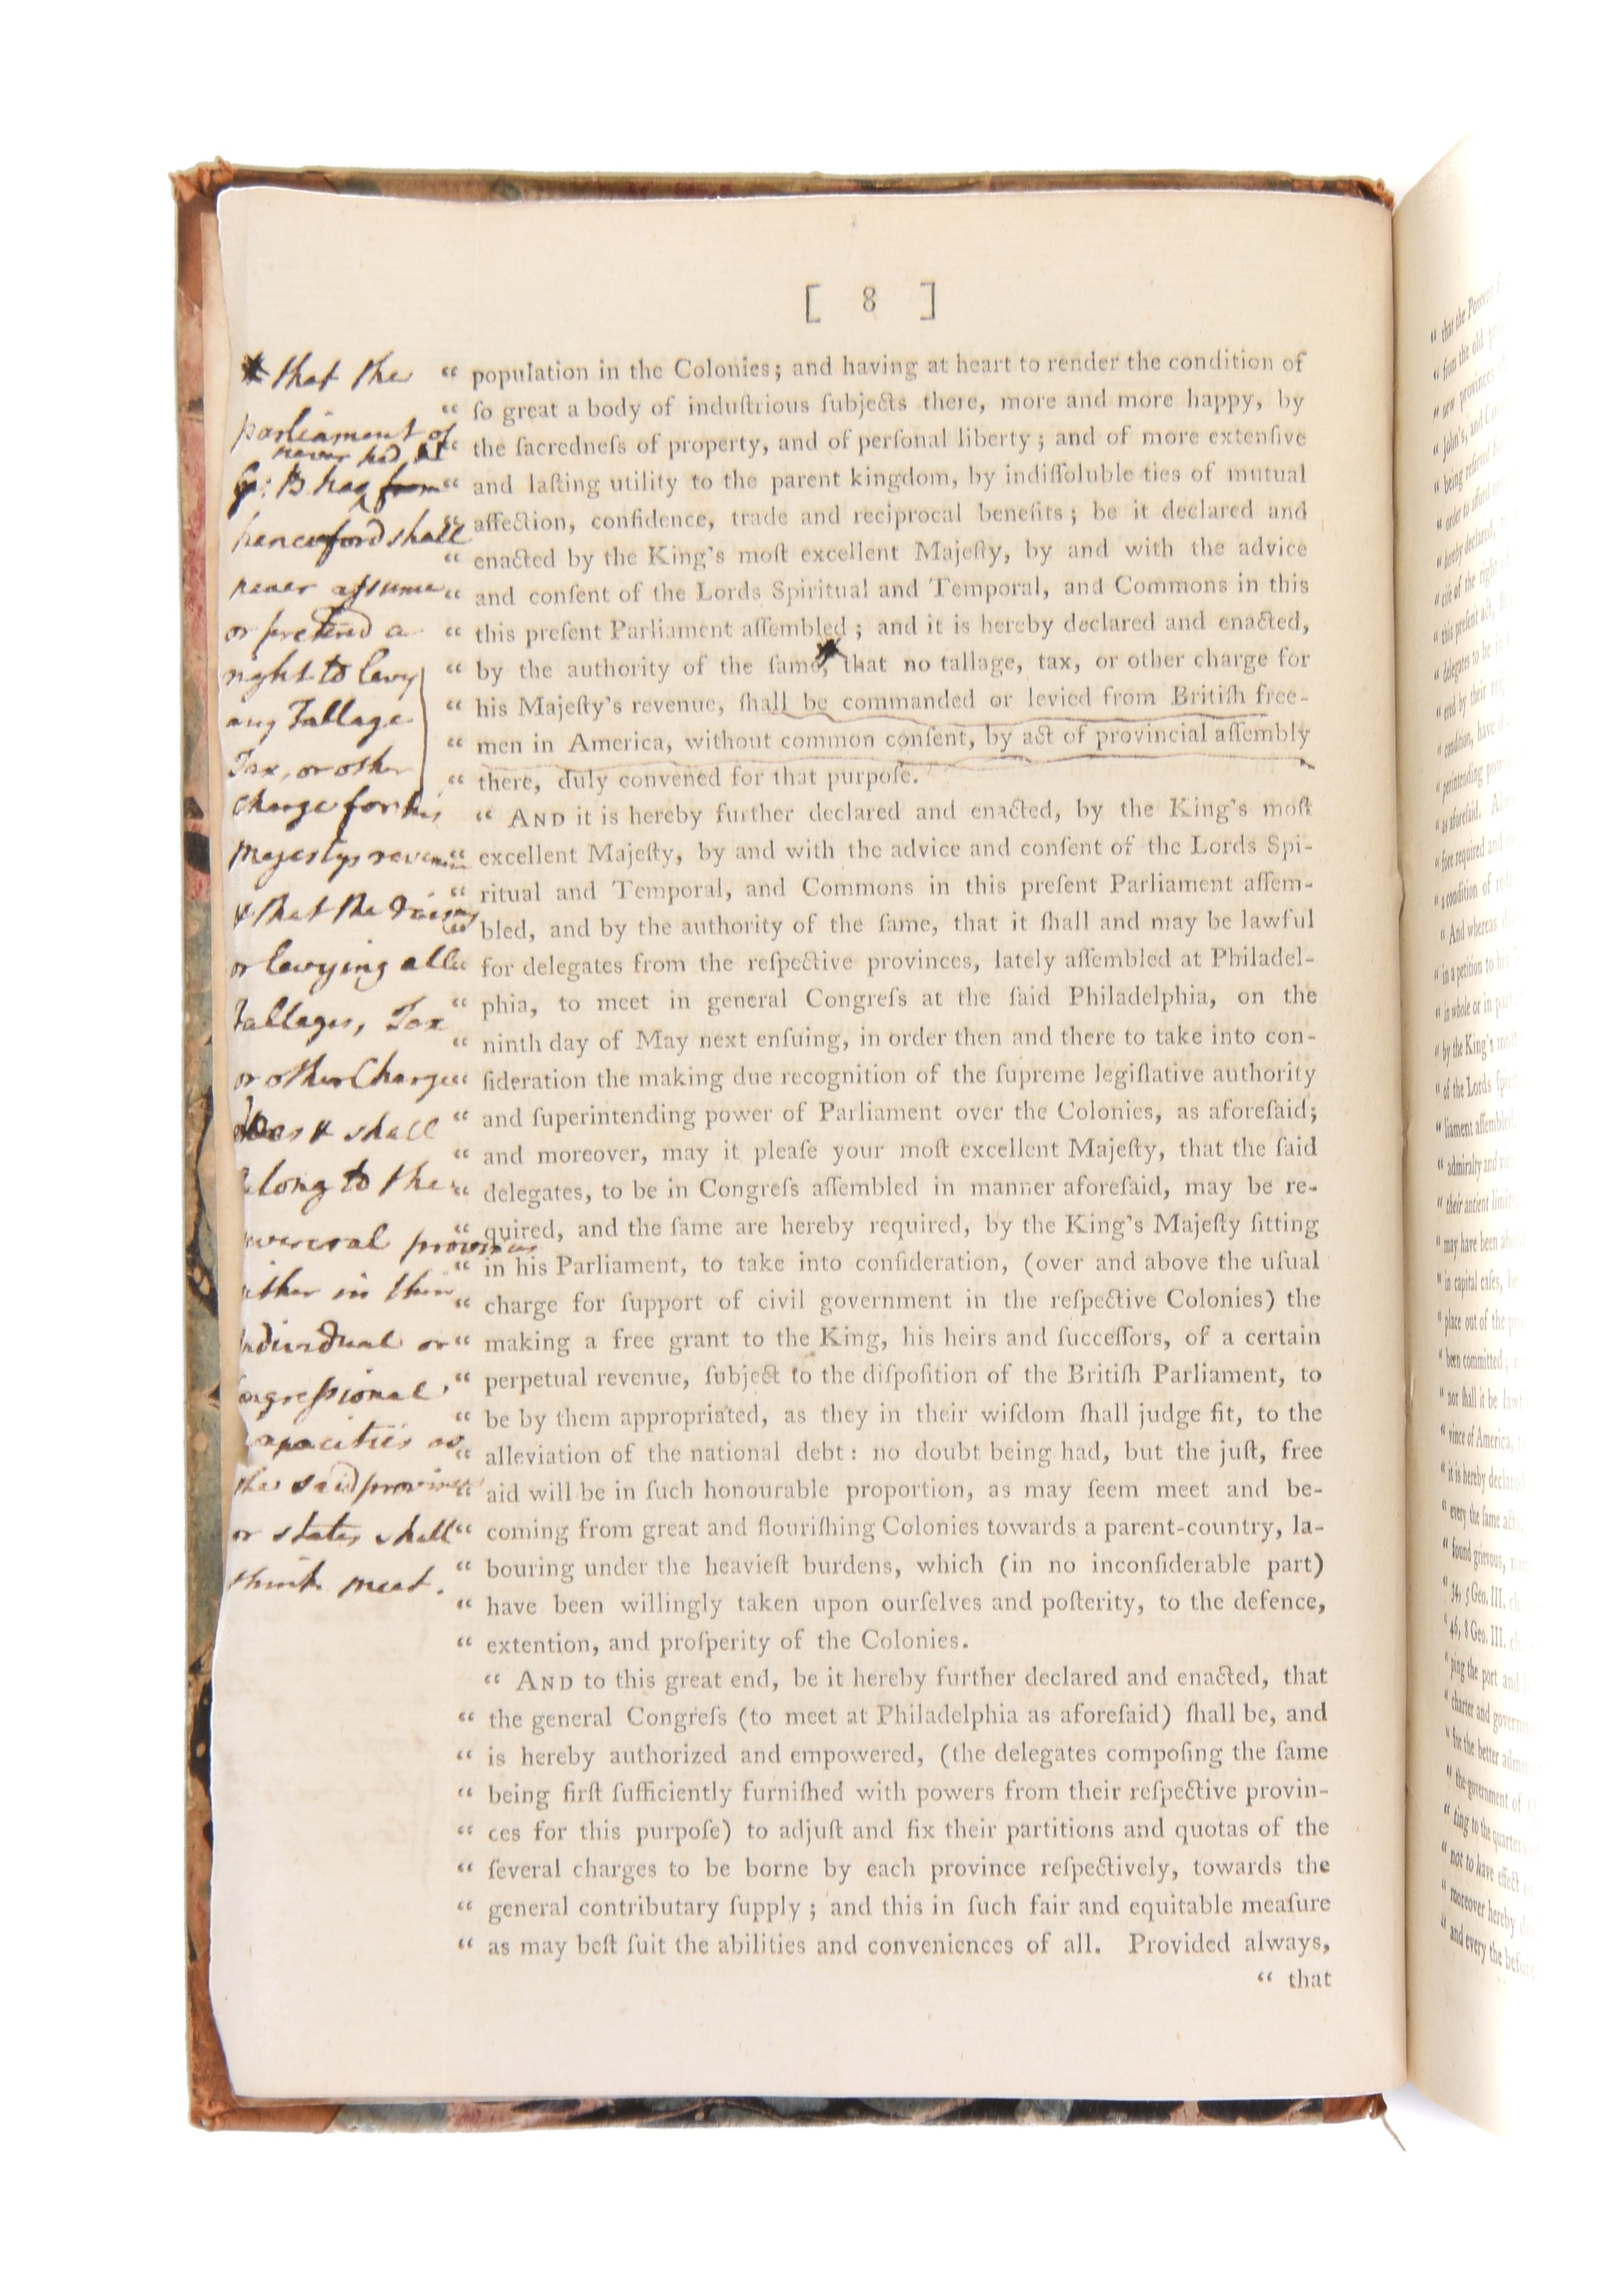 [ 8 ]
“ population in the Colonies; and having at heart to render the condition of
“ ſo great a body of induſtrious ſubjects there, more and more happy, by
“ the ſacredneſs of property, and of perſonal liberty; and of more extenſive
“ and laſting utility to the parent kingdom, by indiſſoluble ties of mutual
“ affection, confidence, trade and reciprocal benefits; be it declared and
“ enacted by the King's moſt excellent Majeſty, by and with the advice
“ and conſent of the Lords Spiritual and Temporal, and Commons in this
“ this preſent Parliament aſſembled; and it is hereby declared and enacted,
“ by the authority of the ſame, that no tallage, tax, or other charge for
“ his Majeſty's revenue, ſhall be commanded or levied from Britiſh free-
“ men in America, without common conſent, by act of provincial aſſembly
“ there, duly convened for that purpoſe.
“ AND it is hereby further declared and enacted, by the King's moſt
“ excellent Majeſty, by and with the advice and conſent of the Lords Spi-
“ ritual and Temporal, and Commons in this preſent Parliament aſſem-
“ bled, and by the authority of the ſame, that it ſhall and may be lawful
“ for delegates from the reſpective provinces, lately aſſembled at Philadel-
“ phia, to meet in general Congreſs at the ſaid Philadelphia, on the
“ ninth day of May next enſuing, in order then and there to take into con-
“ ſideration the making due recognition of the ſupreme legiſlative authority
“ and ſuperintending power of Parliament over the Colonies, as aforeſaid;
“ and moreover, may it pleaſe your moſt excellent Majeſty, that the ſaid
“ delegates, to be in Congreſs aſſembled in manner aforeſaid, may be re-
“ quired, and the ſame are hereby required, by the King's Majeſty ſitting
“ in his Parliament, to take into conſideration, (over and above the uſual
“ charge for ſupport of civil government in the reſpective Colonies) the
“ making a free grant to the King, his heirs and ſucceſſors, of a certain
“ perpetual revenue, ſubject to the diſpoſition of the Britiſh Parliament, to
“ be by them appropriated, as they in their wiſdom ſhall judge fit, to the
“ alleviation of the national debt: no doubt being had, but the juſt, free
“ aid will be in ſuch honourable proportion, as may ſeem meet and be-
“ coming from great and flouriſhing Colonies towards a parent-country, la-
“ bouring under the heavieſt burdens, which (in no inconſiderable part)
“ have been willingly taken upon ourſelves and poſterity, to the defence,
“ extention, and proſperity of the Colonies.
“ AND to this great end, be it hereby further declared and enacted, that
“ the general Congreſs (to meet at Philadelphia as aforeſaid) ſhall be, and
“ is hereby authorized and empowered, (the delegates compoſing the ſame
“ being firſt ſufficiently furniſhed with powers from their reſpective provin-
“ ces for this purpoſe) to adjuſt and fix their partitions and quotas of the
“ ſeveral charges to be borne by each province reſpectively, towards the
“ general contributary ſupply; and this in ſuch fair and equitable meaſure
“ as may beſt ſuit the abilities and conveniences of all. Provided always,
“ that
* that the
parliament of
never had, &
G: B has from
henceford shall
never assume
or pretend a
right to levy
any Tallage
Tax, or other
Charge for his
Majestys revenue
& that the raising
or levying all
Tallages, Tax
or other Charges
does & shall
belong to the
several provinces
either in their
individual or
congressional
capacities as
the said provinces
or states shall
think meet.